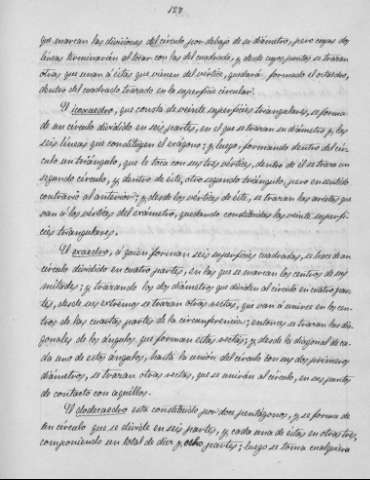 128
que marcan las divisiones del círculo, por debajo de su diámetro, pero cuyas dos
líneas terminarán al tocar con las del cuadrado, y desde cuyos puntos se trazan
otras que unan á éstas que vienen del vértice, quedará formado el octaedro,
dentro del cuadrado trazado en la superficie circular.
El icoxaedro, que consta de veinte superficies triangulares, se forma
de un círculo dividido en seis partes, en el que se trazan su diámetro y los
seis líneas que constituyen el exágono; y luego formando dentro del cír-
culo un triángulo, que le toca con sus tres vértices, dentro de él se traza un
segundo círculo, y dentro de éste, otro segundo triángulo, pero en sentido
contrario al anterior; y desde los vértices de éste, se trazan las aristas que
van á los vértices del exámetro, quedando constituidas las veinte superfi-
cies triangulares.
El exaedro, á quien forman seis superficies cuadradas, se hace de un
círculo dividido en cuatro partes, en las que se marcan los centros de sus
mitades; y trazando los dos diámetros que dividen al círculo en cuatro par-
tes, desde sus extremos se trazan otras rectas, que van á unirse en los cen-
tros de las cuartas partes de la circunferencia; entonces se trazan las dia-
gonales de los ángulos que forman estas rectas; y desde la diagonal de ca-
da uno de estos ángulos, hasta la unión del círculo con sus dos primeros
diámetros, se trazan otras rectas, que se unirán al círculo, en sus puntos
de contacto con aquéllos.
El dodecaedro está constituido por dos pentágonos, y se forma de
un círculo que se divide en seis partes, y cada una de éstas en otras tres,
componiendo un total de diez y ocho partes; luego se toma cualquiera